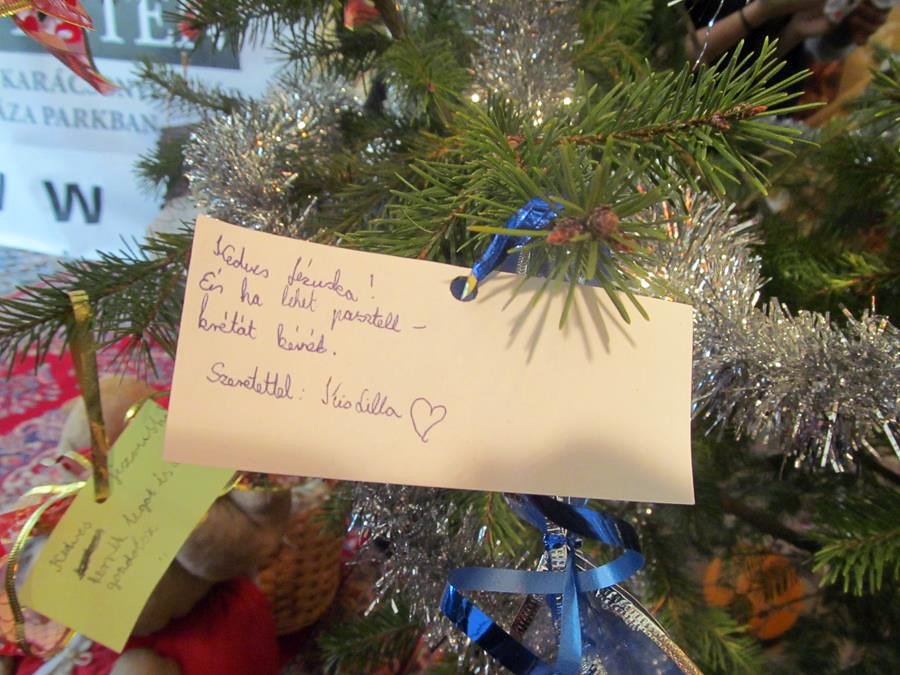 KARÁCSONY
ÁZA PARKBAN
W
Kedves Jézuska!
Én ha lehet pasztell-
krétát kérék.
Szeretettel: Kis Lilla ♡
Kedves Jézuska
legót és